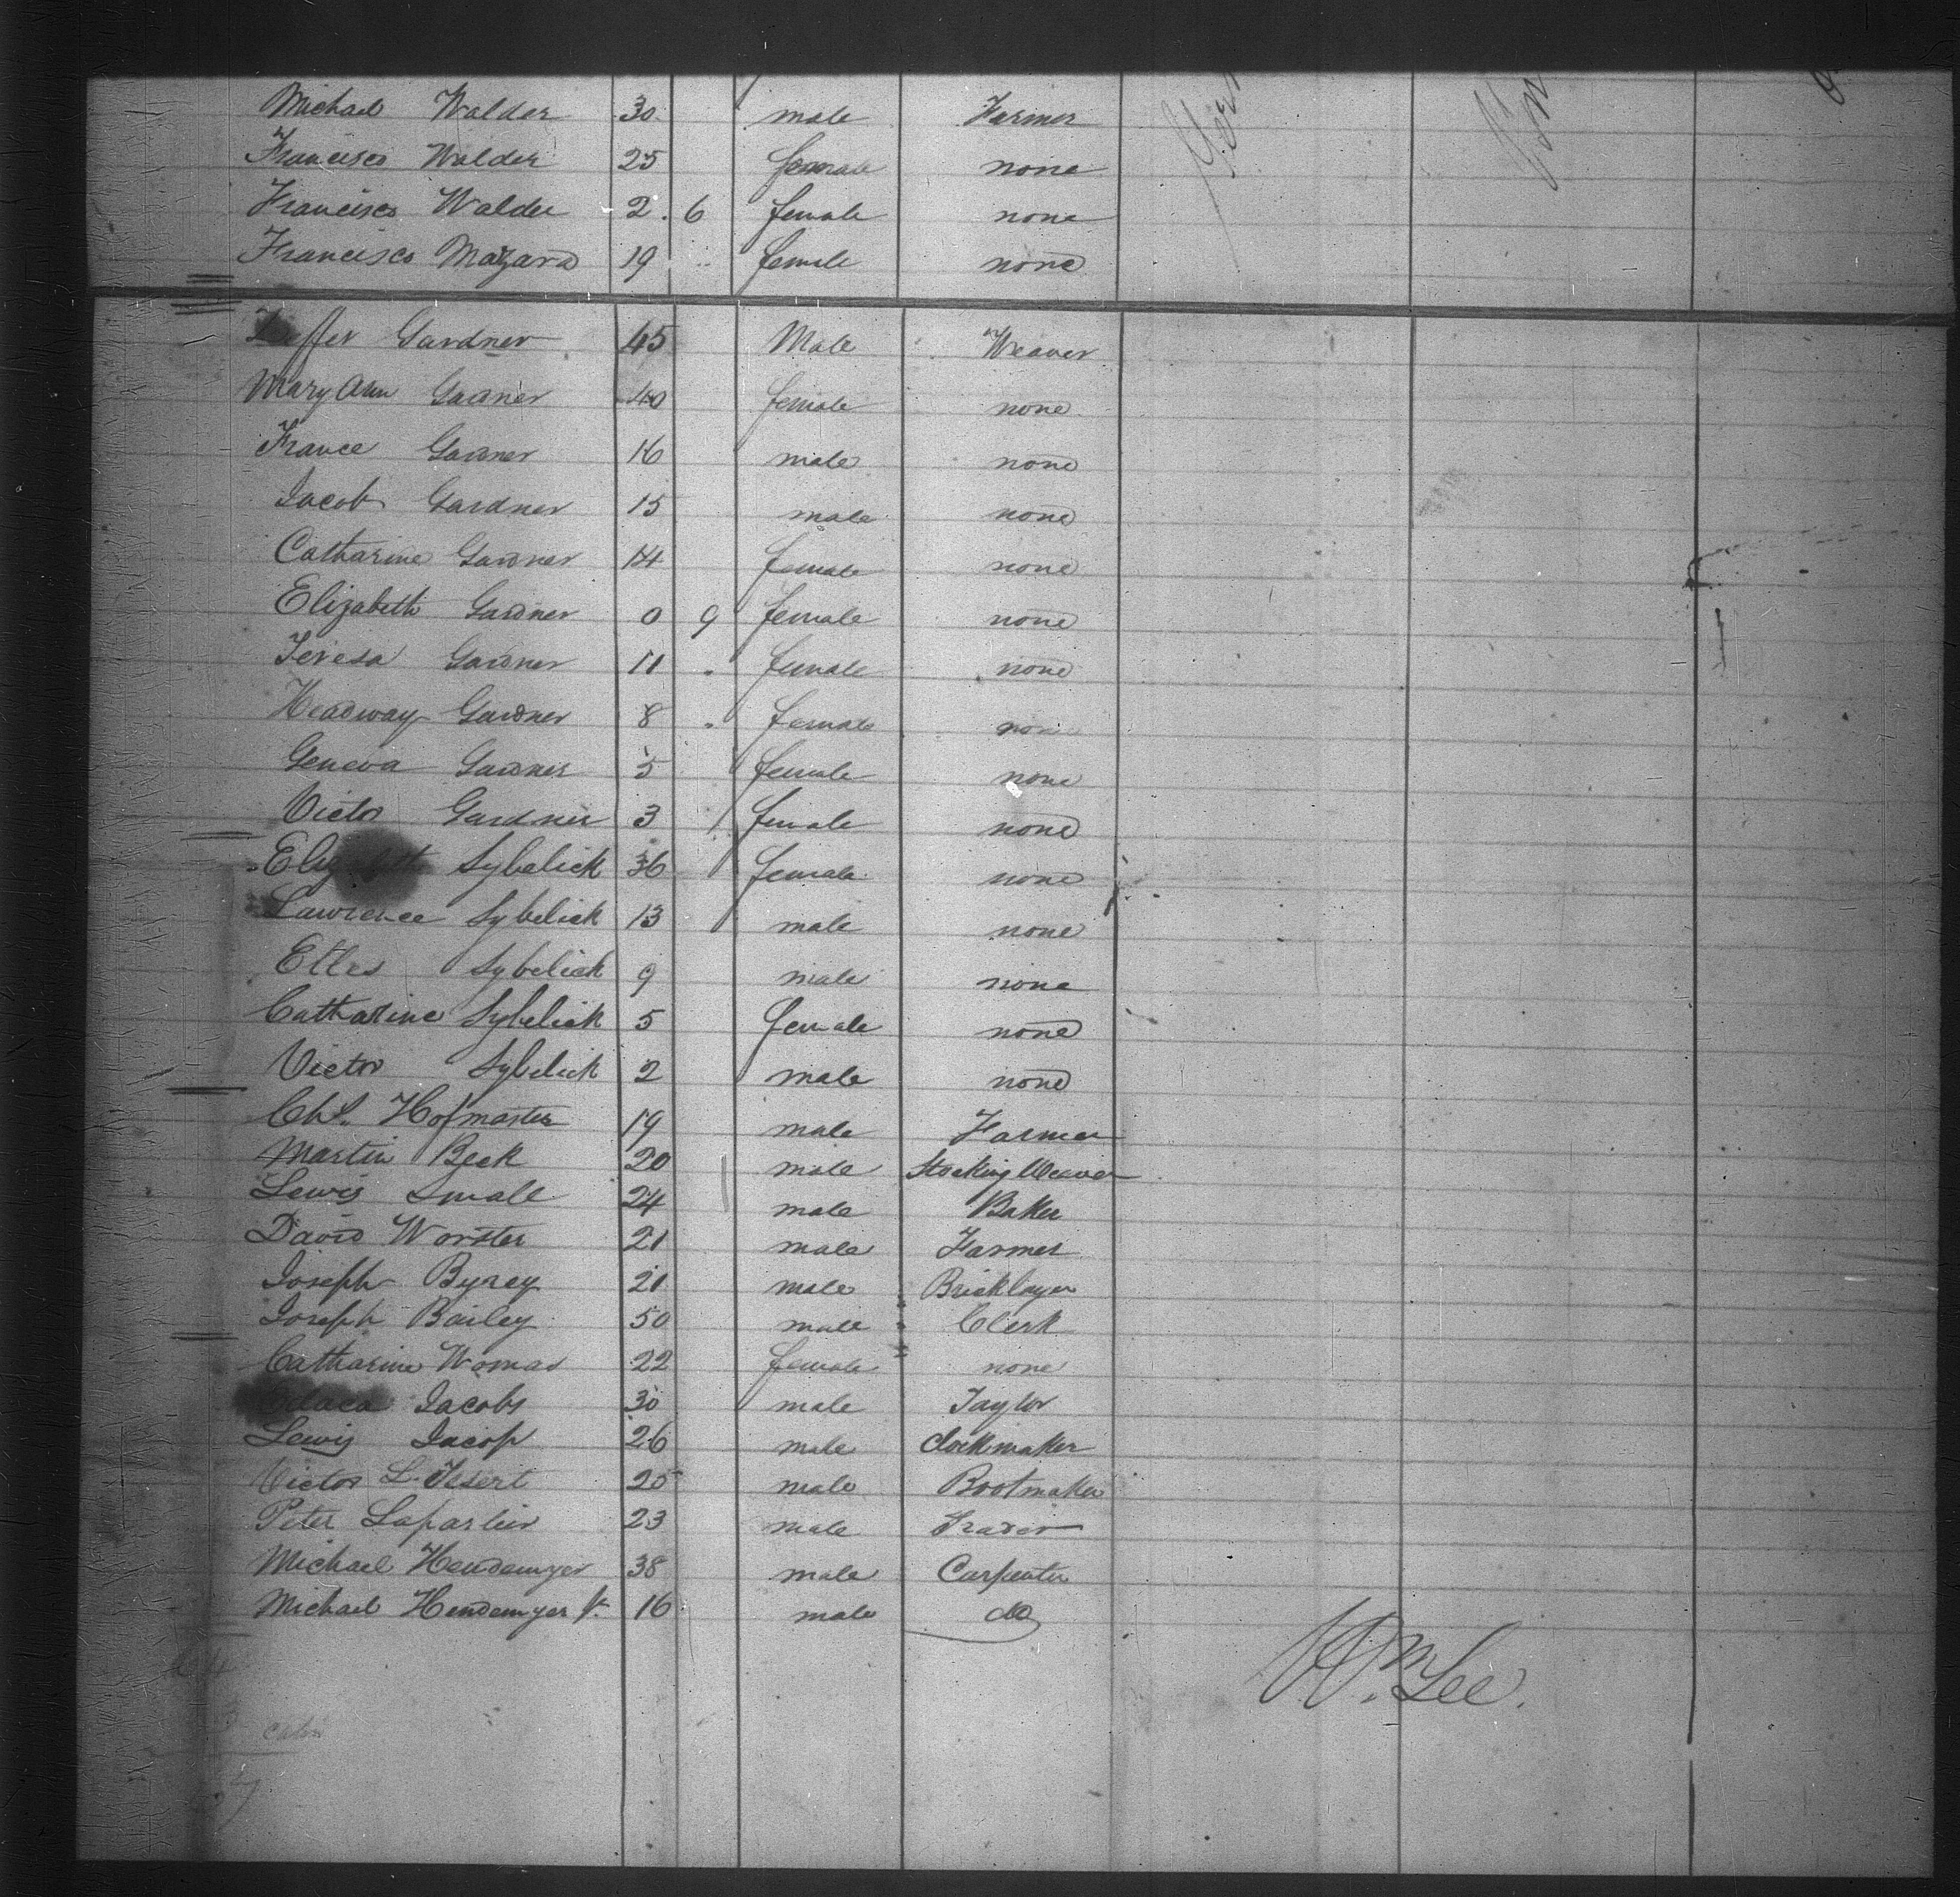 Michael Walder 30 male Farmer
Francisca Walder 25 female none
Francisca Walder 2 . 6 female none
Francisca Mazard 19 female none
Gardner 45 Male Weaver
Mary Ann Gardner 40 female none
France Gardner 16 male none
Jacob Gardner 15 male none
Catharine Gardner 14 female none
Elizabeth Gardner 0 9 female none
Teresa Gardner 11 female none
Headway Gardner 8 female none
Geneva Gardner 5 female none
Victor Gardner 3 female none
Elizabeth Sybelick 36 female none
Lawrence Sybelick 13 male none
Sybelick 9 male none
Catharine Sybelick 5 female none
Victor Sybelick 2 male none
Chs. Hofmaster 19 male Farmer
Martin Beck 20 male Stocking Weaver
Lewis Small 24 male Baker
David Worster 21 male Farmer
Joseph Byrey 21 male Bricklayer
Joseph Bailey 50 male Clerk
Catharine Womar 22 female none
Jacobs 30 male Taylor
Lewis Jacop 26 male Clockmaker
Victor L. 25 male Bootmaker
Peter Lapartier 23 male Trader
Michael Hendemyer 38 male Carpenter
Michael Hendemyer Jr. 16 male do
Wm. Lee.